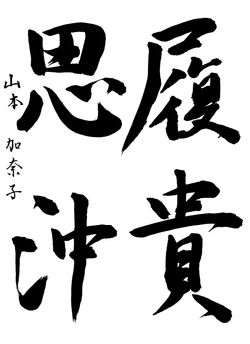 履貴
思沖
山本 加奈子